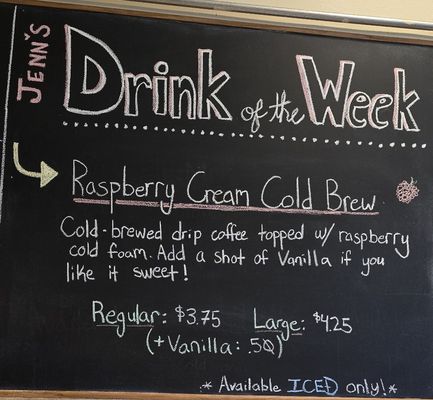 JENN'S
Drink of the Week
Raspberry Cream Cold Brew
Cold-brewed drip coffee topped w/ raspberry
cold foam. Add a shot of Vanilla if you
like it sweet!
Regular: $3.75 Large: $4.25
(+ Vanilla: .50)
* Available ICED only! *